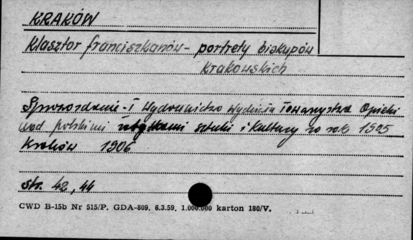 KRAKÓW
Klasztor franciszkanów - portrety biskupów
krakowskich
Sprawozdanie - I Wydawnictwo Wydział Towarzystwa Opieki
nad polskimi zabytkami sztuki i kultury za rok 1905
Kraków 1906
str. 42, 44
CWD B-15b Nr 515/P. GDA-809. 6.3.59. 1.000.000 karton 180/V.